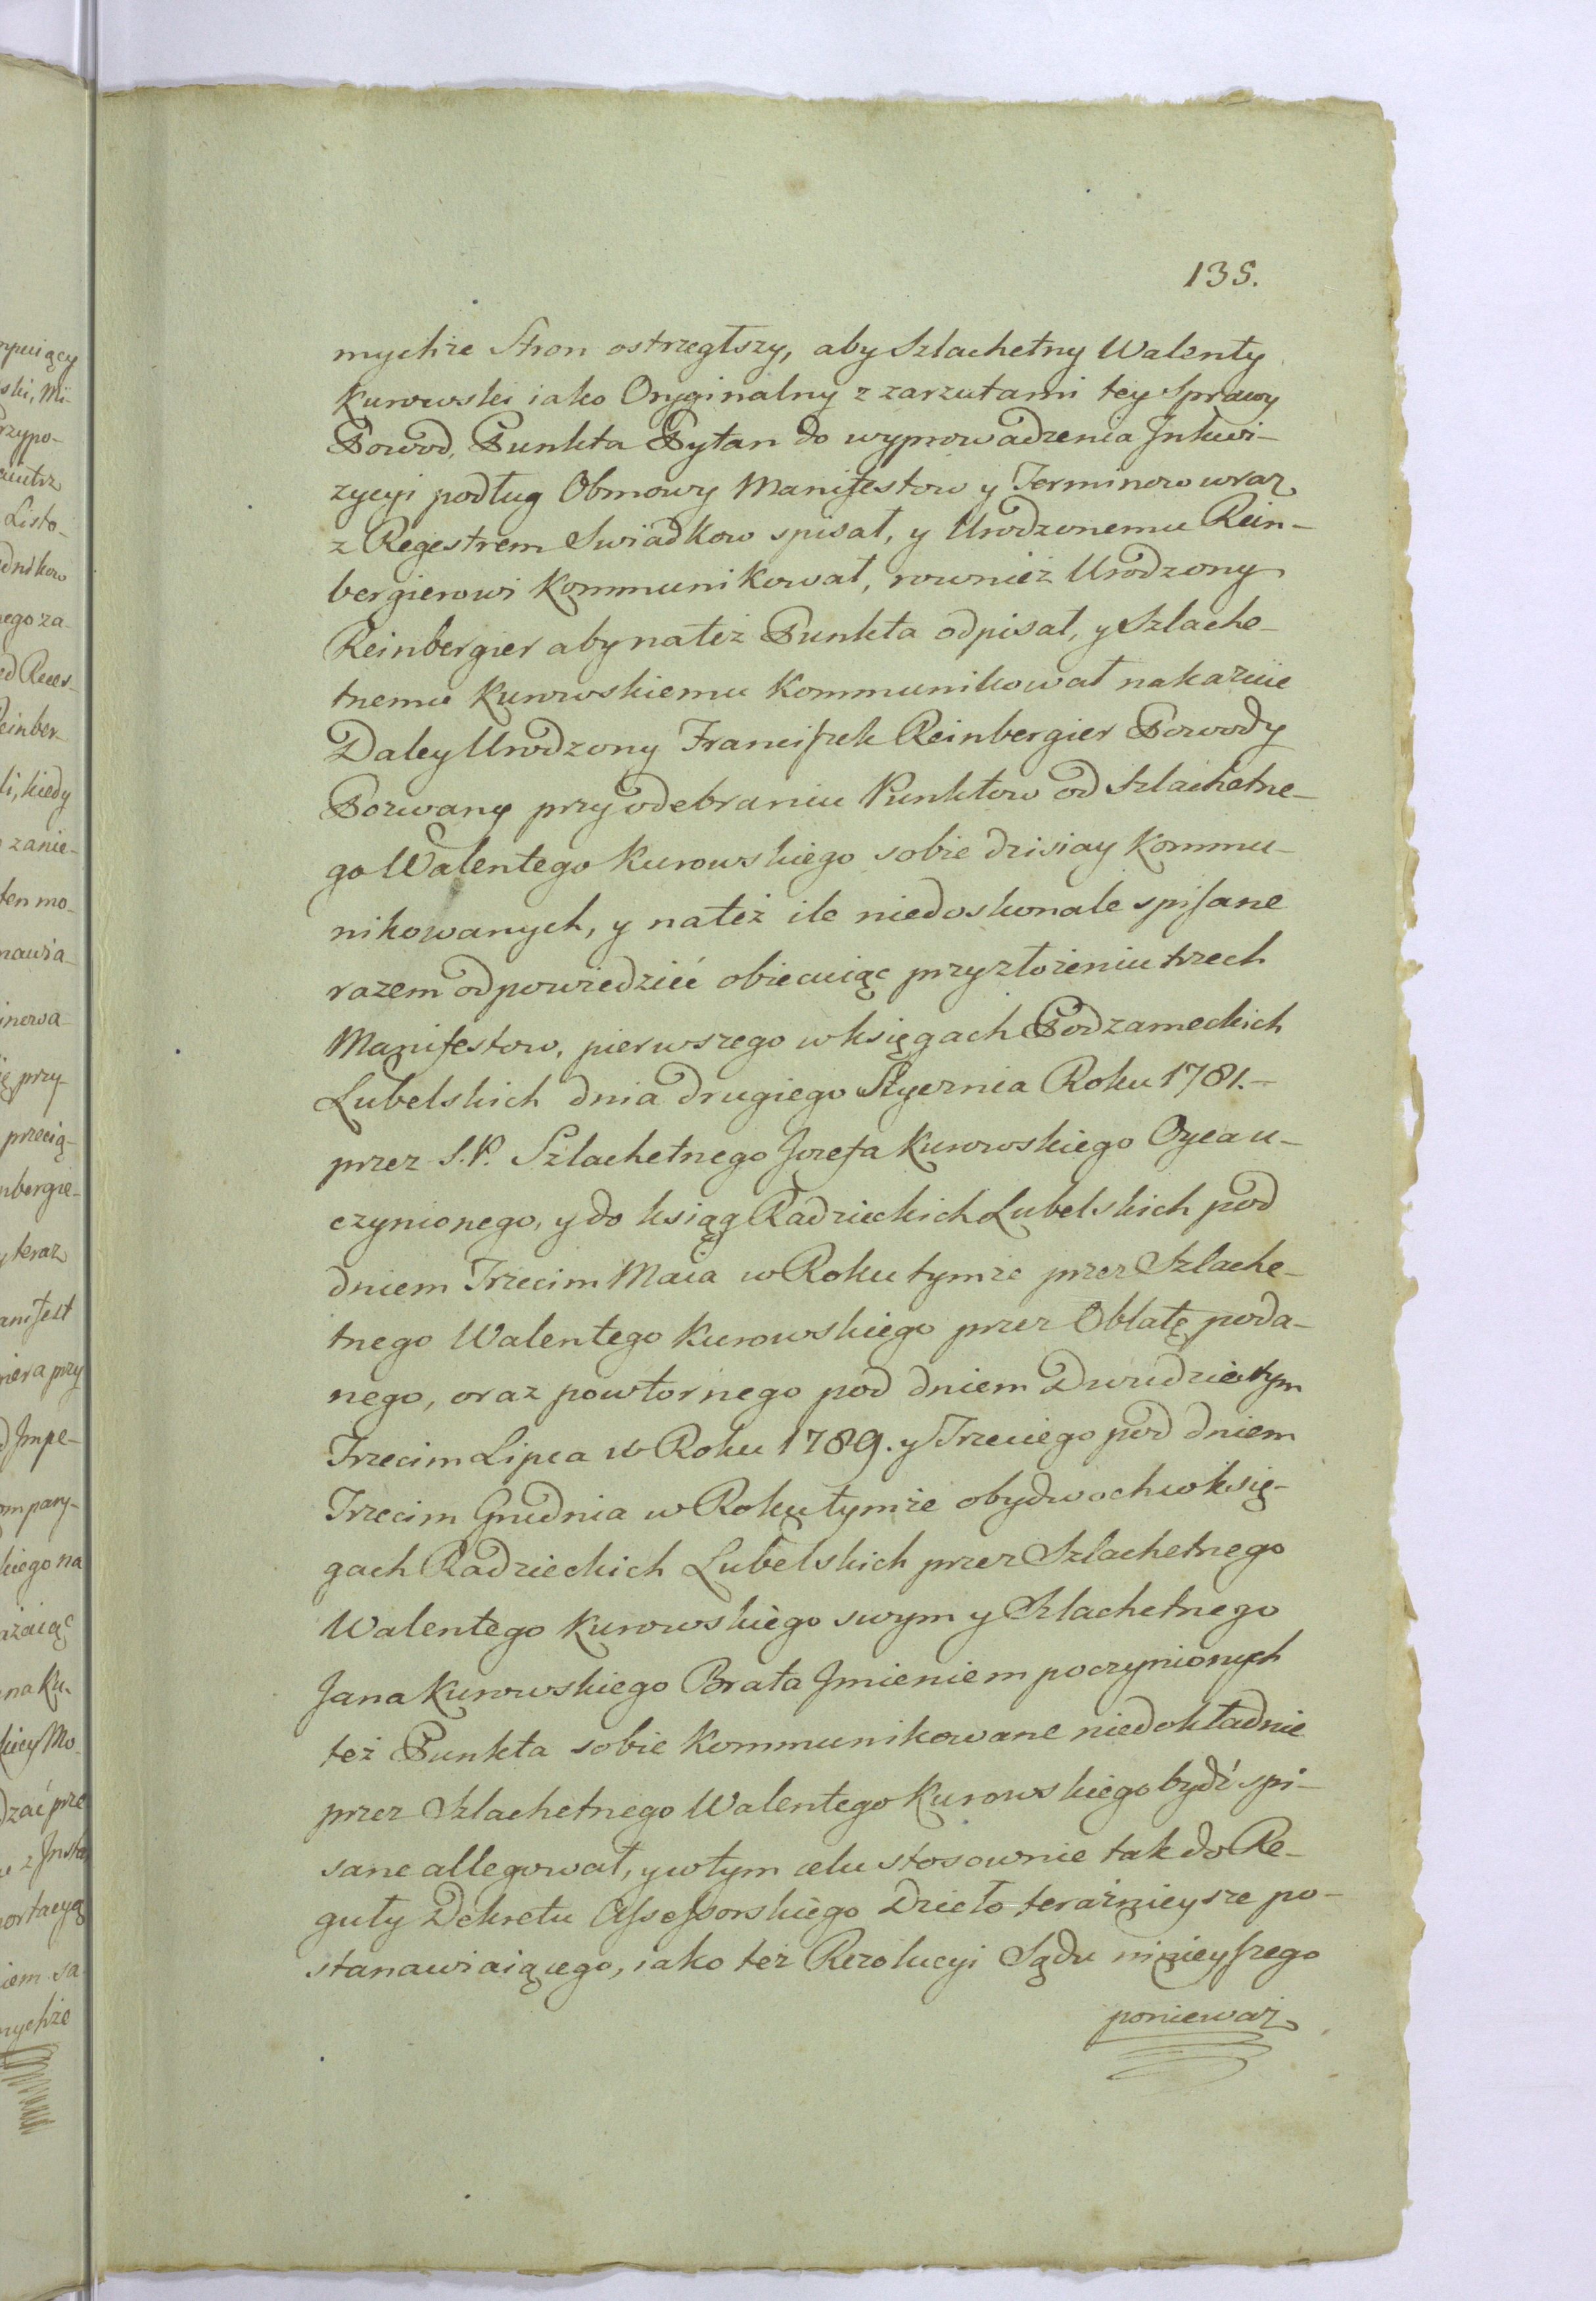 135.
mychże Stron ostrzegłszy, aby Szlachetny Walenty
Kurowski iako Oryginalny z zarzutami tey Sprawy
Powod, Punkta Pytan do wyprowadzenia Inkwi-
zycyi podług Obmowy Manifestow y Terminow wraz
z Regestrem Swiadkow spisał, y Urodzonemu Rein-
bergierowi Kommunikował, rownież Urodzony
Reinbergier aby nateż Punkta odpisał, y Szlache-
tnemu Kurowskiemu Kommunikował nakazuie
Daley Urodzony Franciszek Reinbergier Powody
Pozwany przy odebraniu Punktow od Szlachetne-
go Walentego Kurowskiego sobie dzisiay Kommu-
nikowanych, y nateż ile niedoskonale spisane
razem odpowiedzić obiecuiąc przy złożeniu trzech
Manifestow, pierwszego w księgach Podzameckich
Lubelskich dnia drugiego Stycznia Roku 1781.-
przez S.P. Szlachetnego Jozefa Kurowskiego Oyca u-
czynionego, y do ksiąg Radzieckich Lubelskich pod
dniem Trzecim Maia w Roku tymże przez Szlache-
tnego Walentego Kurowskiego przez Oblatę poda-
nego, oraz powtornego pod dniem Dwudziestym
Trzecim Lipca w Roku 1789. y Trzeciego pod dniem
Trzecim Grudnia w Roku tymże obydwoch w księ-
gach Radzieckich Lubelskich przez Szlachetnego
Walentego Kurowskiego swym y Szlachetnego
Jana Kurowskiego Brata Imieniem poczynionych
też Punkta sobie Kommunikowane niedokładnie
przez Szlachetnego Walentego Kurowskiego bydź spi-
sane allegował, y w tym celu stosownie tak do Re-
guły Dekretu Assessorskiego Dzieło teraźnieysze po-
stanawiaiącego, iako też Rezolucyi Sądu ninieyszego
ponieważ